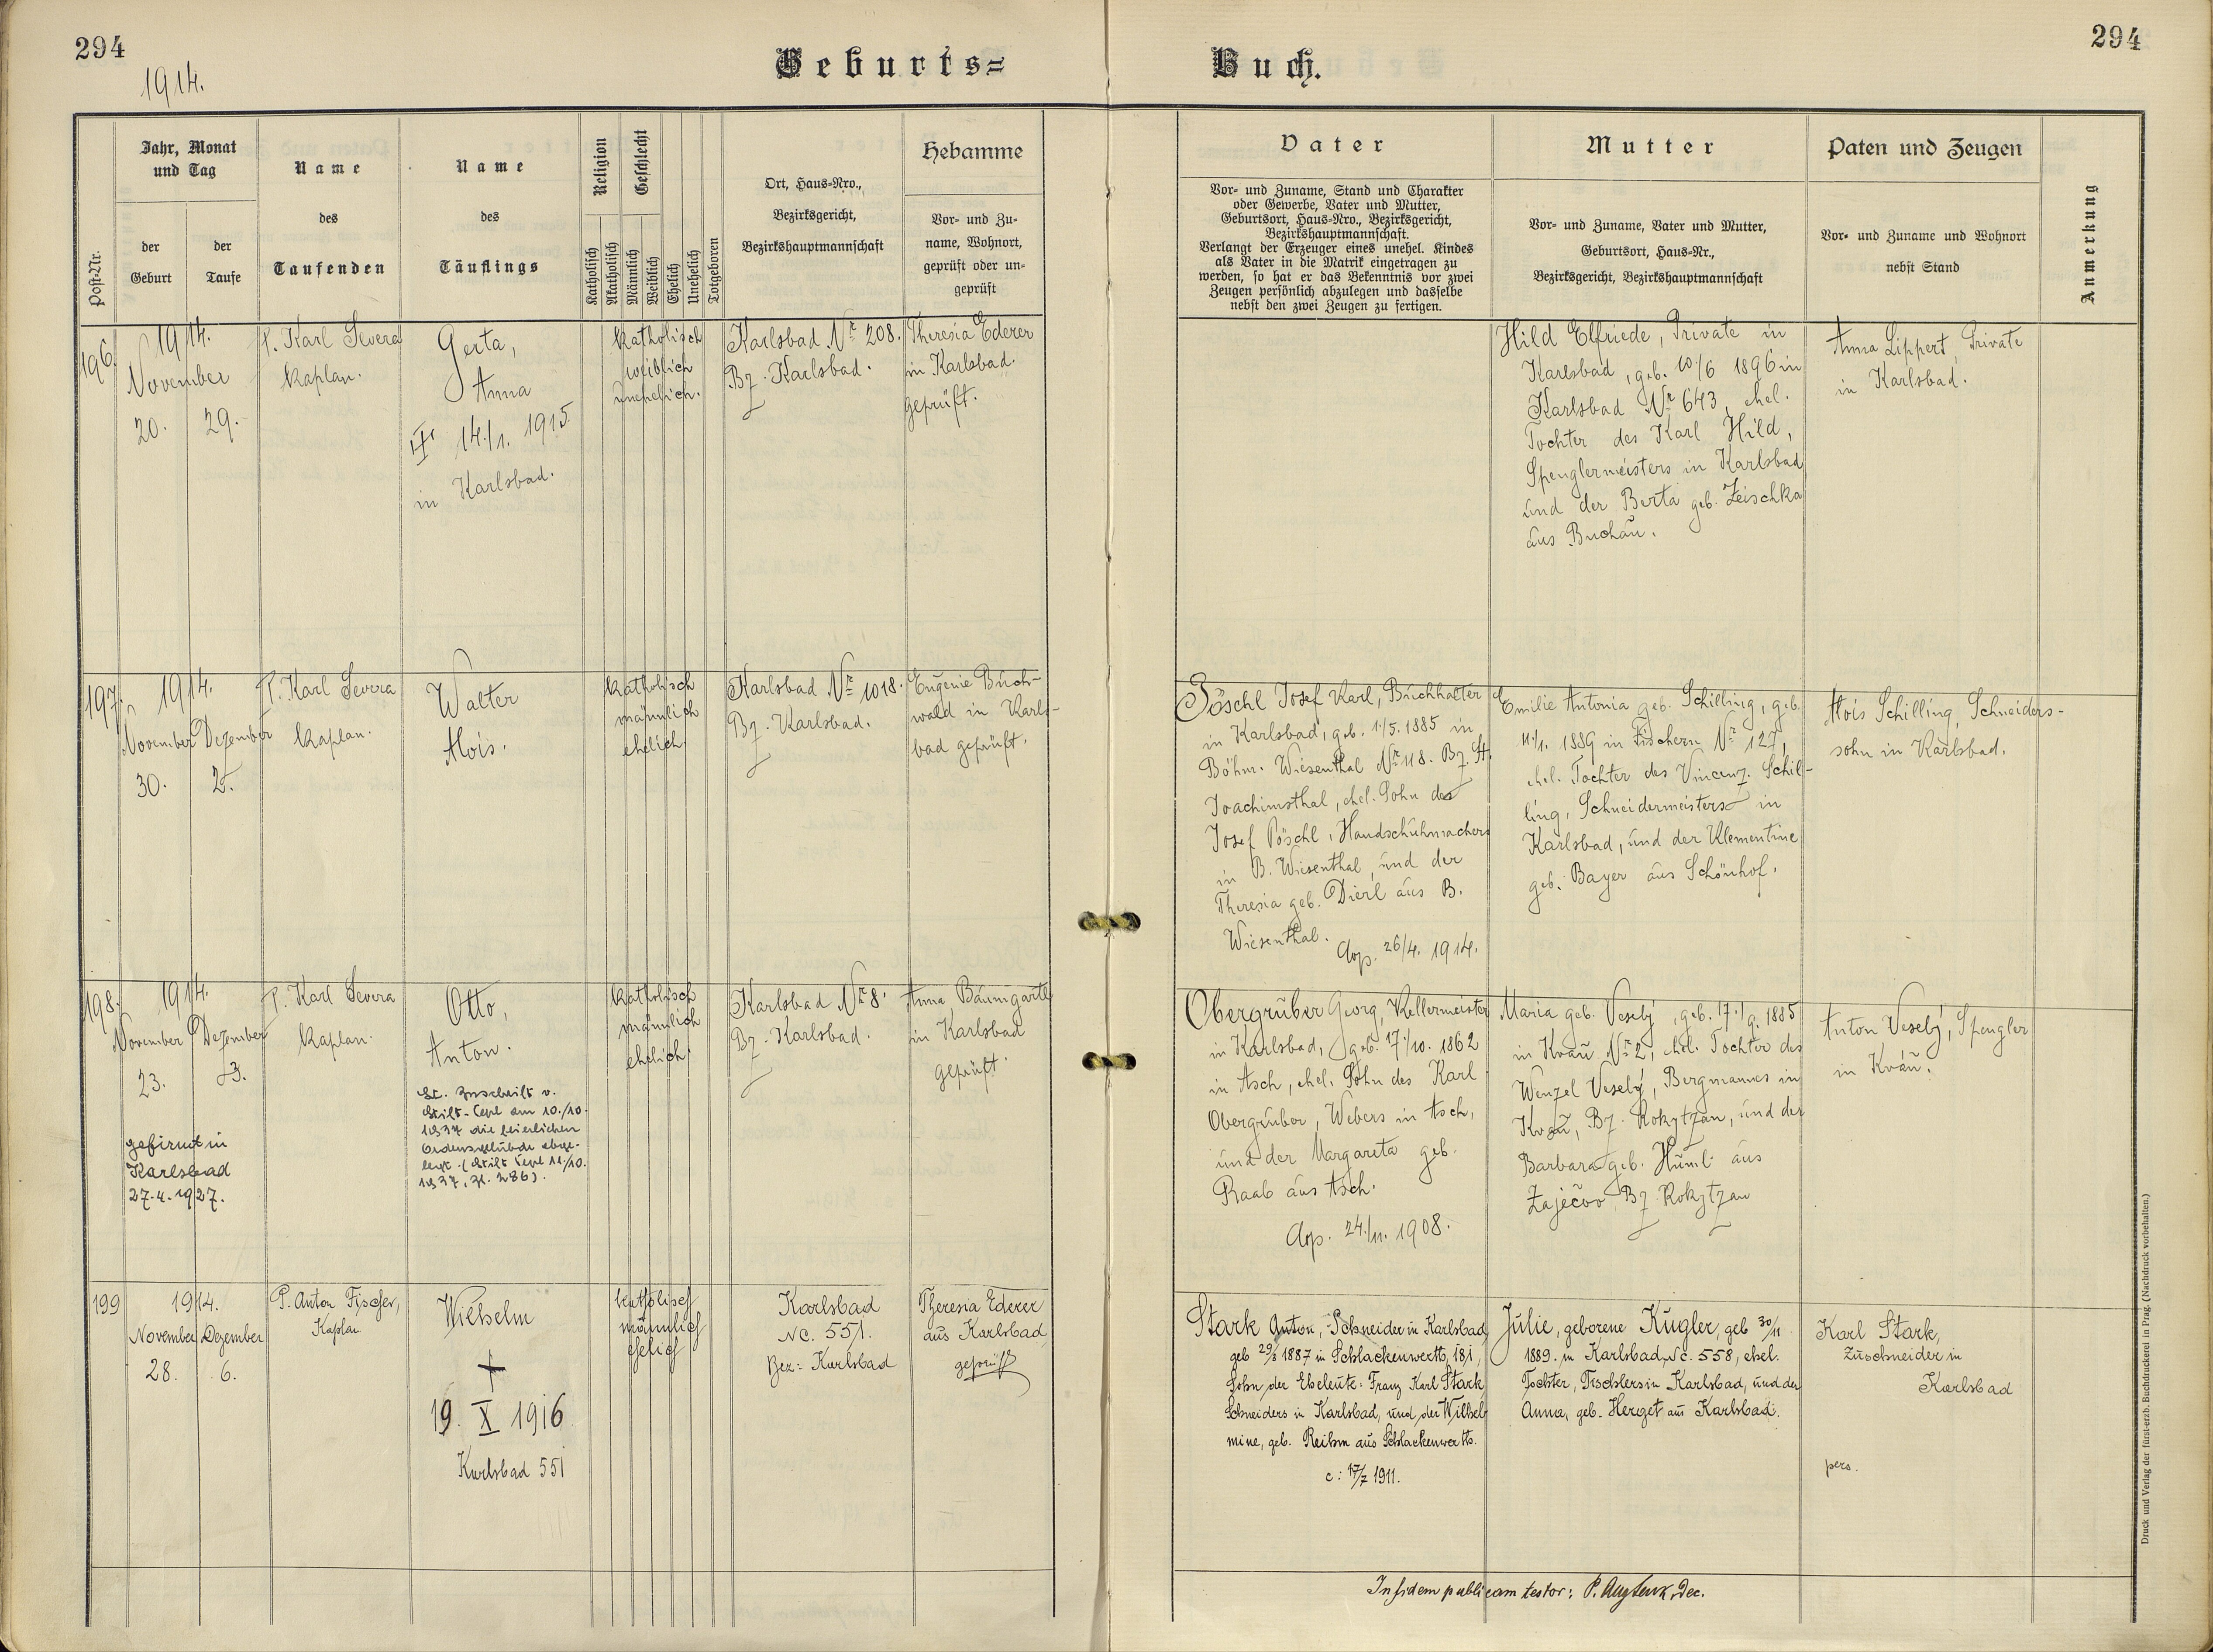 294
1914.
Geburts=
Buch.
294
Post-Nr.
Jahr, Monat
und Tag
der
Geburt
der
Taufe
Name
des
Taufenden
Name
des
Täuflings
Religion
Katholisch
Akatholisch
Geschlecht
Männlich
Weiblich
Ehelich
Unehelich
Totgeboren
Ort, Haus-Nro.,
Bezirksgericht,
Bezirkshauptmannschaft
Hebamme
Vor- und Zu-
name, Wohnort,
geprüft oder un-
geprüft
Vater
Vor- und Zuname, Stand und Charakter
oder Gewerbe, Vater und Mutter,
Geburtsort, Haus-Nro., Bezirksgericht,
Bezirkshauptmannschaft.
Verlangt der Erzeuger eines unehel. Kindes
als Vater in die Matrik eingetragen zu
werden, so hat er das Bekenntnis vor zwei
Zeugen persönlich abzulegen und dasselbe
nebst den zwei Zeugen zu fertigen.
Mutter
Vor- und Zuname, Vater und Mutter,
Geburtsort, Haus-Nr.,
Bezirksgericht, Bezirkshauptmannschaft
Paten und Zeugen
Vor- und Zuname und Wohnort
nebst Stand
Anmerkung
196.
1914.
November
20. 29.
P. Karl Severa
Kaplan.
Gerta,
Anna
14./1. 1915.
in Karlsbad.
katholisch
weiblich
unehelich.
Karlsbad Nr 208.
Bz. Karlsbad.
Theresia Ederer
in Karlsbad.
geprüft.
Hild Elfriede, Private in
Karlsbad, geb. 10/6 1896 in
Karlsbad Nr 643, ehel.
Tochter des Karl Hild,
Spenglermeisters in Karlsbad
und der Berta geb. Zeischka
aus Buchau.
Anna Lippert, Private
in Karlsbad.
197.
1914.
November Dezember
30. 2.
P. Karl Severa
Kaplan.
Walter
Alois.
katholisch
männlich
ehelich.
Karlsbad Nr 1018.
Bz. Karlsbad.
Eugenie Buch-
wald in Karls-
bad geprüft.
Pöschl Josef Karl, Buchhalter
in Karlsbad, geb. 1/5. 1885 in
Böhm. Wiesenthal Nr 118. Bz. St.
Joachimsthal, ehel. Sohn des
Josef Pöschl, Handschuhmachers
in B. Wiesenthal, und der
Theresia geb. Dierl aus B.
Wiesenthal.
Cop. 26/4. 1914.
Emilie Antonia geb. Schilling, geb.
11./1. 1889 in Fischern Nr 127,
ehel. Tochter des Vincenz Schil-
ling, Schneidermeisters in
Karlsbad, und der Klementine
geb. Bayer aus Schönhof.
Alois Schilling, Schneiders-
sohn in Karlsbad.
198.
1914.
November Dezember
23. 3.
gefirmt in
Karlsbad
27.4.1927.
P. Karl Severa
Kaplan.
Otto,
Anton.
Lt. Zuschrift v.
Stift-Tepl am 10./10.
1937 die feierlichen
Ordensgelübde abge-
legt. (Stift Tepl 11./10.
1937, Zl. 286).
katholisch
männlich
ehelich.
Karlsbad Nr 8.
Bz. Karlsbad.
Anna Baumgartl
in Karlsbad
geprüft.
Obergruber Georg, Kellermeister
in Karlsbad, geb. 17/10. 1862
in Asch, ehel. Sohn des Karl
Obergruber, Webers in Asch,
und der Margareta geb.
Raab aus Asch.
Cop. 24./11. 1908.
Maria geb. Veselý, geb. 17./9. 1885
in Kváň Nr 2, ehel. Tochter des
Wenzel Veselý, Bergmannes in
Kváň, Bz. Rokytzan, und der
Barbara geb. Huml aus
Zaječov Bz Rokytzan
Anton Veselý, Spengler
in Kváň.
199
1914.
November Dezember
28. 6.
P. Anton Fischer,
Kaplan
Wilhelm
+
19. X 1916
Karlsbad 551
katholisch
männlich
ehelich
Karlsbad
Nc. 551.
Bez: Karlsbad
Theresia Ederer
aus Karlsbad,
geprüft
Stark Anton, Schneider in Karlsbad,
geb 29/3 1887 in Schlackenwerth, 181,
Sohn der Eheleute: Franz Karl Stark,
Schneiders in Karlsbad, und der Wilhel-
mine, geb. Reihm aus Schlackenwerth.
c: 17/7 1911.
Julie, geborene Kugler, geb 30/11
1889. in Karlsbad, Nc. 558, ehel.
Tochter, Tischlers in Karlsbad, und der
Anna, geb. Herget aus Karlsbad.
Karl Stark,
Zuschneider in
Karlsbad
pers.
In fidem publicam testor: P. Dec.
Druck und Verlag der fürst-erzb. Buchdruckerei in Prag. (Nachdruck vorbehalten.)